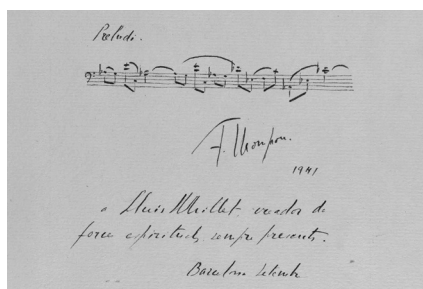 Preludi.
F. Mompou.
1941
a Lluis Millet creador de
forces espirituals sempre presents.
Barcelona Setembre